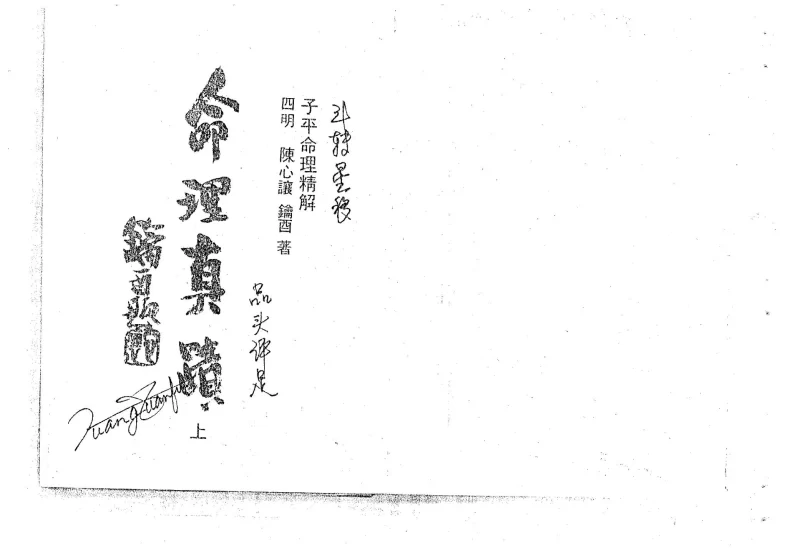 斗转星移
子平命理精解
四明 陳心讓 鑰酉 著
品头评足
命理真蹟
上